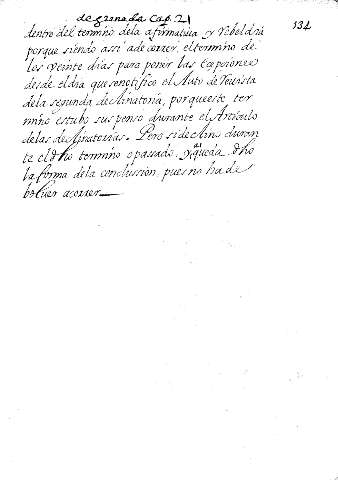 de granada Cap. 21
134
dentro del termino dela afirmatiua y rebeldia
porque siendo assi ade correr, el termino de
los veinte dias para poner las excepciones
desde el dia que se notifico el Auto de Reuista
dela segunda declinatoria, porque este ter
mino estubo suspenso durante el Articulo
delas declinatorias. Pero si declino duran
te el dho termino o passado, ya queda dho
la forma dela conclussion, pues no ha de
boluer acorrer